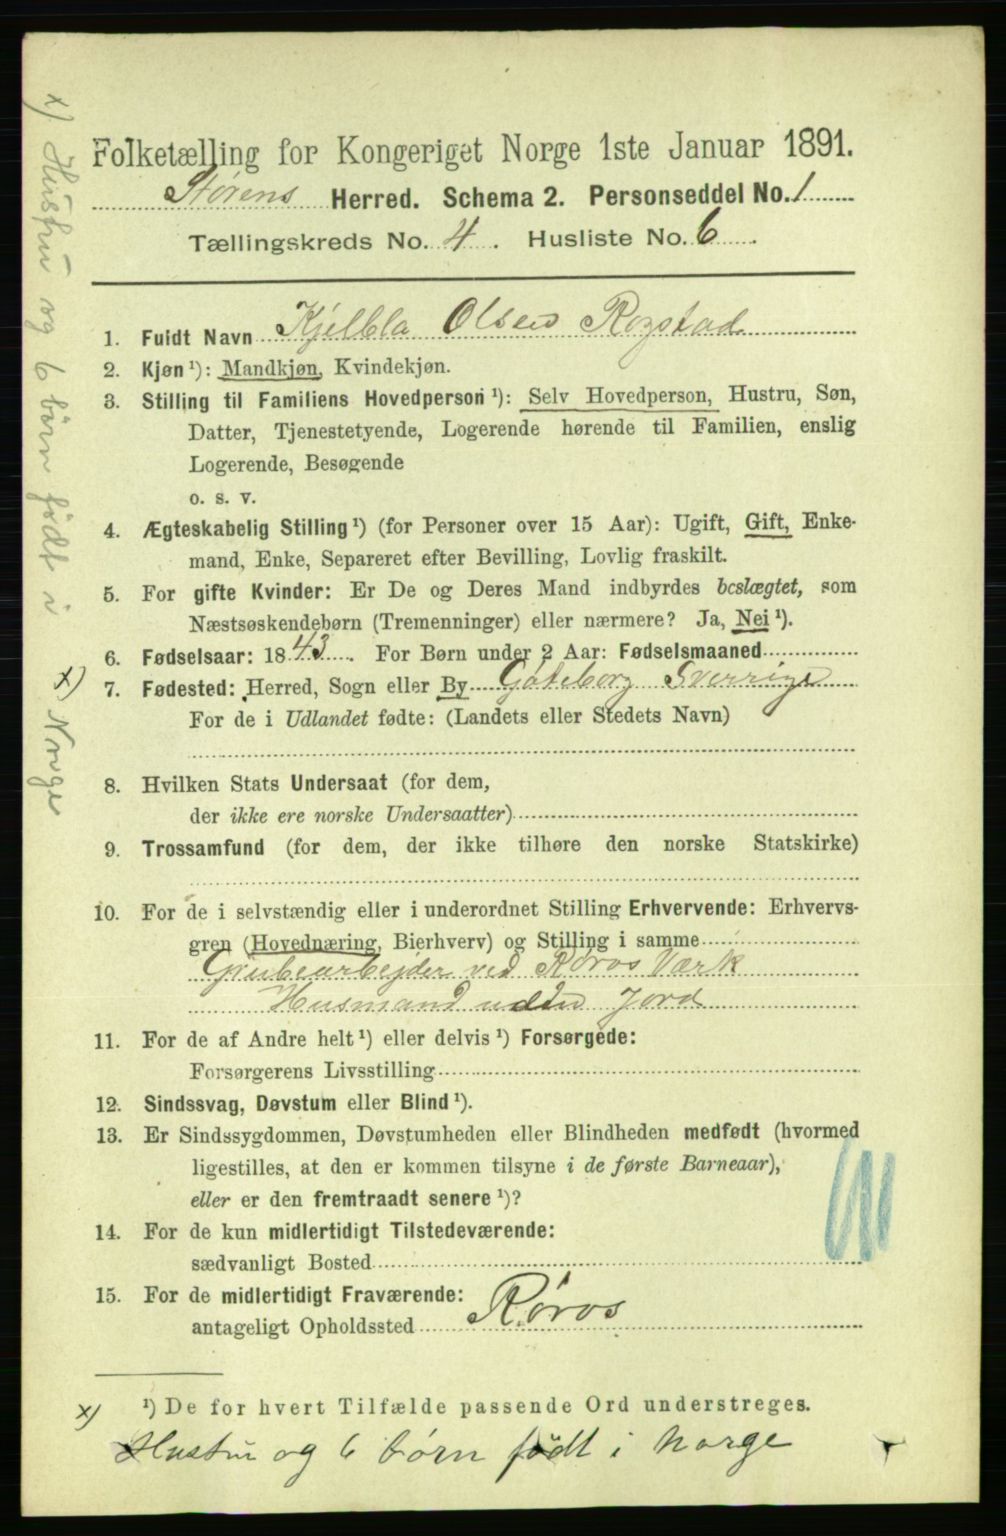 Folketælling for Kongeriget Norge 1ste Januar 1891.
Størens Herred. Schema 2. Personseddel No. 1
Tællingskreds No. 4. Husliste No. 6.
1. Fuldt Navn Olsen Rogstad
2. Kjøn ¹): Mandkjøn, Kvindekjøn.
3. Stilling til Familiens Hovedperson ¹): Selv Hovedperson, Hustru, Søn,
Datter, Tjenestetyende, Logerende hørende til Familien, enslig
Logerende, Besøgende
o. s. v.
4. Ægteskabelig Stilling ¹) (for Personer over 15 Aar): Ugift, Gift, Enke-
mand, Enke, Separeret efter Bevilling, Lovlig fraskilt.
5. For gifte Kvinder: Er De og Deres Mand indbyrdes beslægtet, som
Næstsøskendebørn (Tremenninger) eller nærmere? Ja, Nei ¹).
6. Fødselsaar: 1843. For Børn under 2 Aar: Fødselsmaaned
7. Fødested: Herred, Sogn eller By Göteborg Sverrige
For de i Udlandet fødte: (Landets eller Stedets Navn)
8. Hvilken Stats Undersaat (for dem,
der ikke ere norske Undersaatter)
9. Trossamfund (for dem, der ikke tilhøre den norske Statskirke)
10. For de i selvstændig eller i underordnet Stilling Erhvervende: Erhvervs-
gren (Hovednæring, Bierhverv) og Stilling i samme
Grubearbejder ved Røros Værk
Husmand uden Jord
11. For de af Andre helt ¹) eller delvis ¹) Forsørgede:
Forsørgerens Livsstilling
12. Sindssvag, Døvstum eller Blind ¹).
13. Er Sindssygdommen, Døvstumheden eller Blindheden medfødt (hvormed
ligestilles, at den er kommen tilsyne i de første Barneaar),
eller er den fremtraadt senere ¹)?
14. For de kun midlertidigt Tilstedeværende:
sædvanligt Bosted
15. For de midlertidigt Fraværende:
antageligt Opholdssted Røros
¹) De for hvert Tilfælde passende Ord understreges.
x) Hustru og 6 børn født i Norge
x) Hustru og 6 børn født i
x) Norge